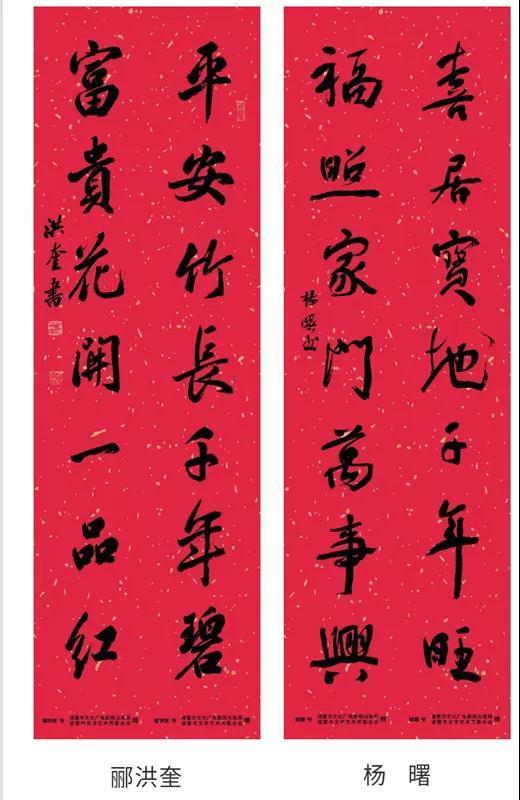 平安竹長千年碧
富貴花開一品红
洪奎書
喜居寳地千年旺
福照家門萬事興
杨曙书
郦洪奎
杨 曙